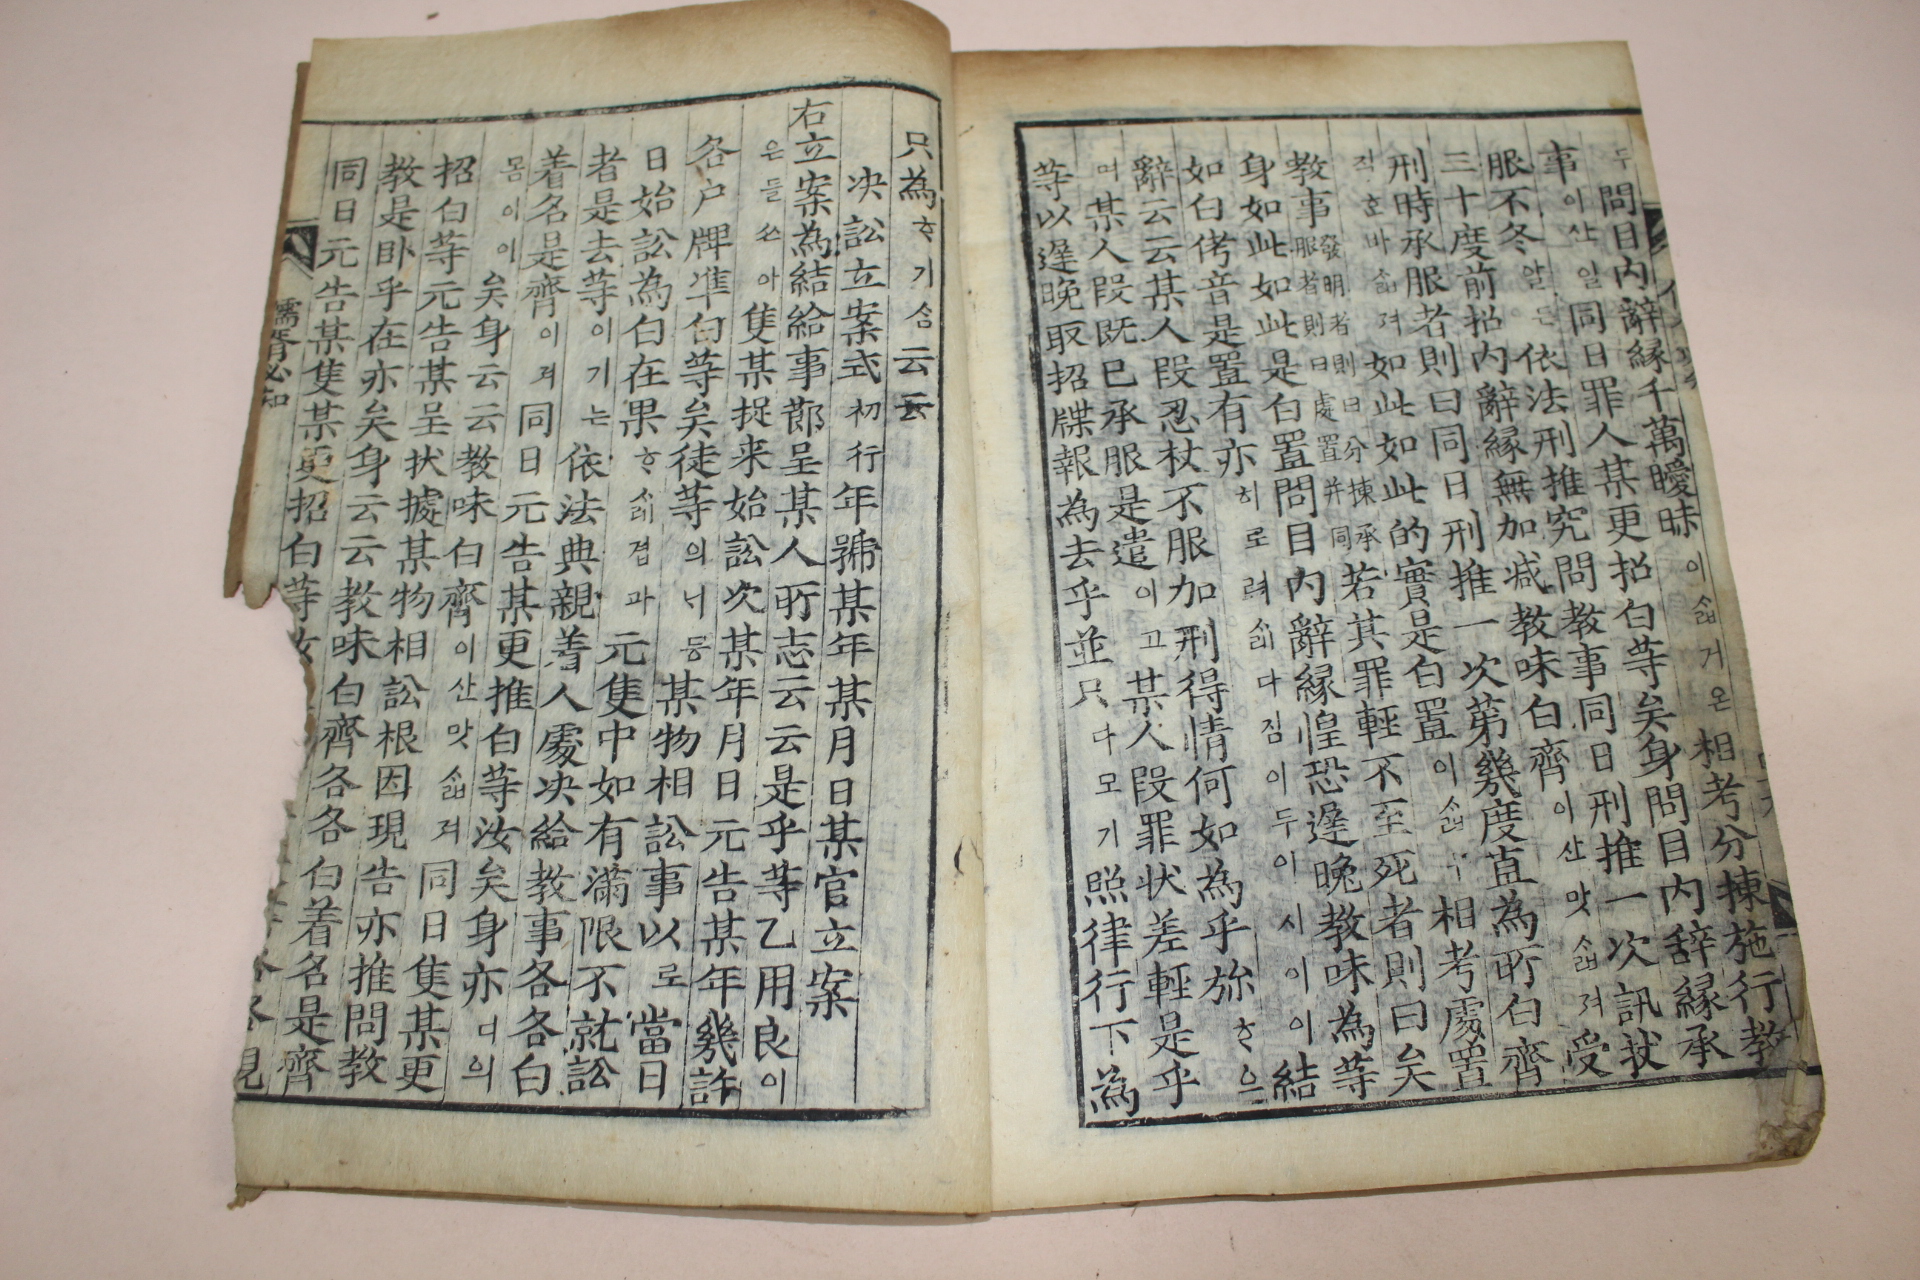 두 問目內辭緣千萬曖昧 이ᄉᆞᆲ거온 相考分揀施行敎
事 이산일 同日罪人某更招白等矣身問目內辞緣承
服不冬 안든 依法刑推究問敎事同日刑推一次訊狀
三十度前招內辭緣無加减敎味白齊 이산맛ᄉᆞᆲ져 受
刑時承服者則曰同日刑推一次第幾度直為所白齊
직ᄒᆞ바ᄉᆞᆲ져 如此如此的實是白置 이ᄉᆞᆲ두 相考處置
敎事 發明者則曰分揀承服者則曰處置并同 若其罪輕不至死者則曰矣
身如此如此是白置問目內辭緣惶恐遲晚敎味為等
如白侤音是置有亦 ᄒᆞ로려ᄉᆞᆲ다짐이두이시이 結
辭云云某人段忍杖不服加刑得情何如為乎旀 ᄒᆞ온
며 某人段既已承服是遣 이고 某人段罪状差輕是乎
等以遲晚取招牒報為去乎並只 다모기 照律行下為
只為 ᄒᆞ기ᄉᆞᆷ 云云
决訟立案式 初行年號某年某月日某官立案
右立案為結給事節呈某人所志云云是乎等乙用良 이
은들ᄡᅳ아 隻某捉来始訟次某年月日元告某年幾許
各戶牌凖白等矣徒等 의너등 某物相訟事以 로 當日
日始訟為白在果 ᄒᆞᄉᆞᆲ견과 元隻中如有滿限不就訟
者是去等 이기는 依法典親着人處决給敎事各各白
着名是齊 이져 同日元告某更推白等汝矣身亦 너의
몸이이 矣身云云敎味白齊 이산맛ᄉᆞᆲ져 同日隻某更
招白等元告某呈状據某物相訟根因現告亦推問敎
敎是卧乎在亦矣身云云敎味白齊各各白着名是齊
同日元告某隻某更招白等
儒胥必知